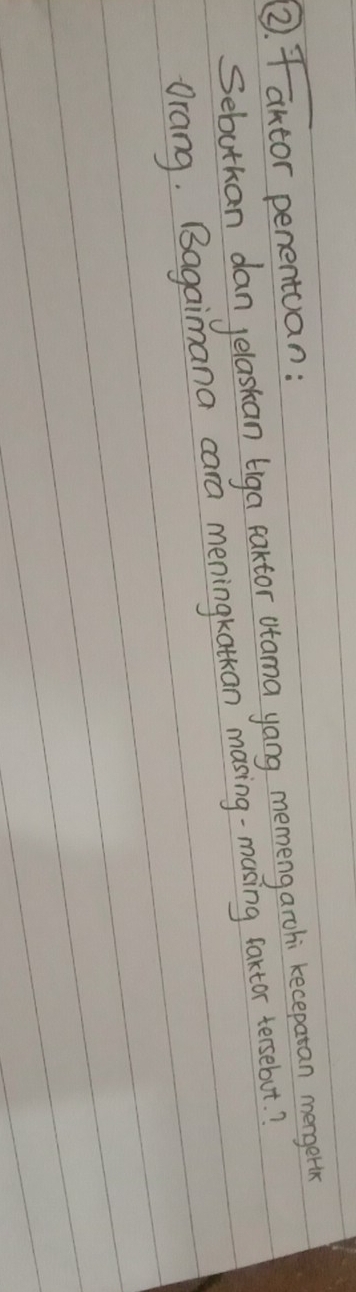 ②. Faktor penentuan:
Sebutkan dan jelaskan tiga faktor utama yang memengaruhi kecepatan mengetik
orang. Bagaimana cara meningkatkan masing-masing faktor tersebut.?